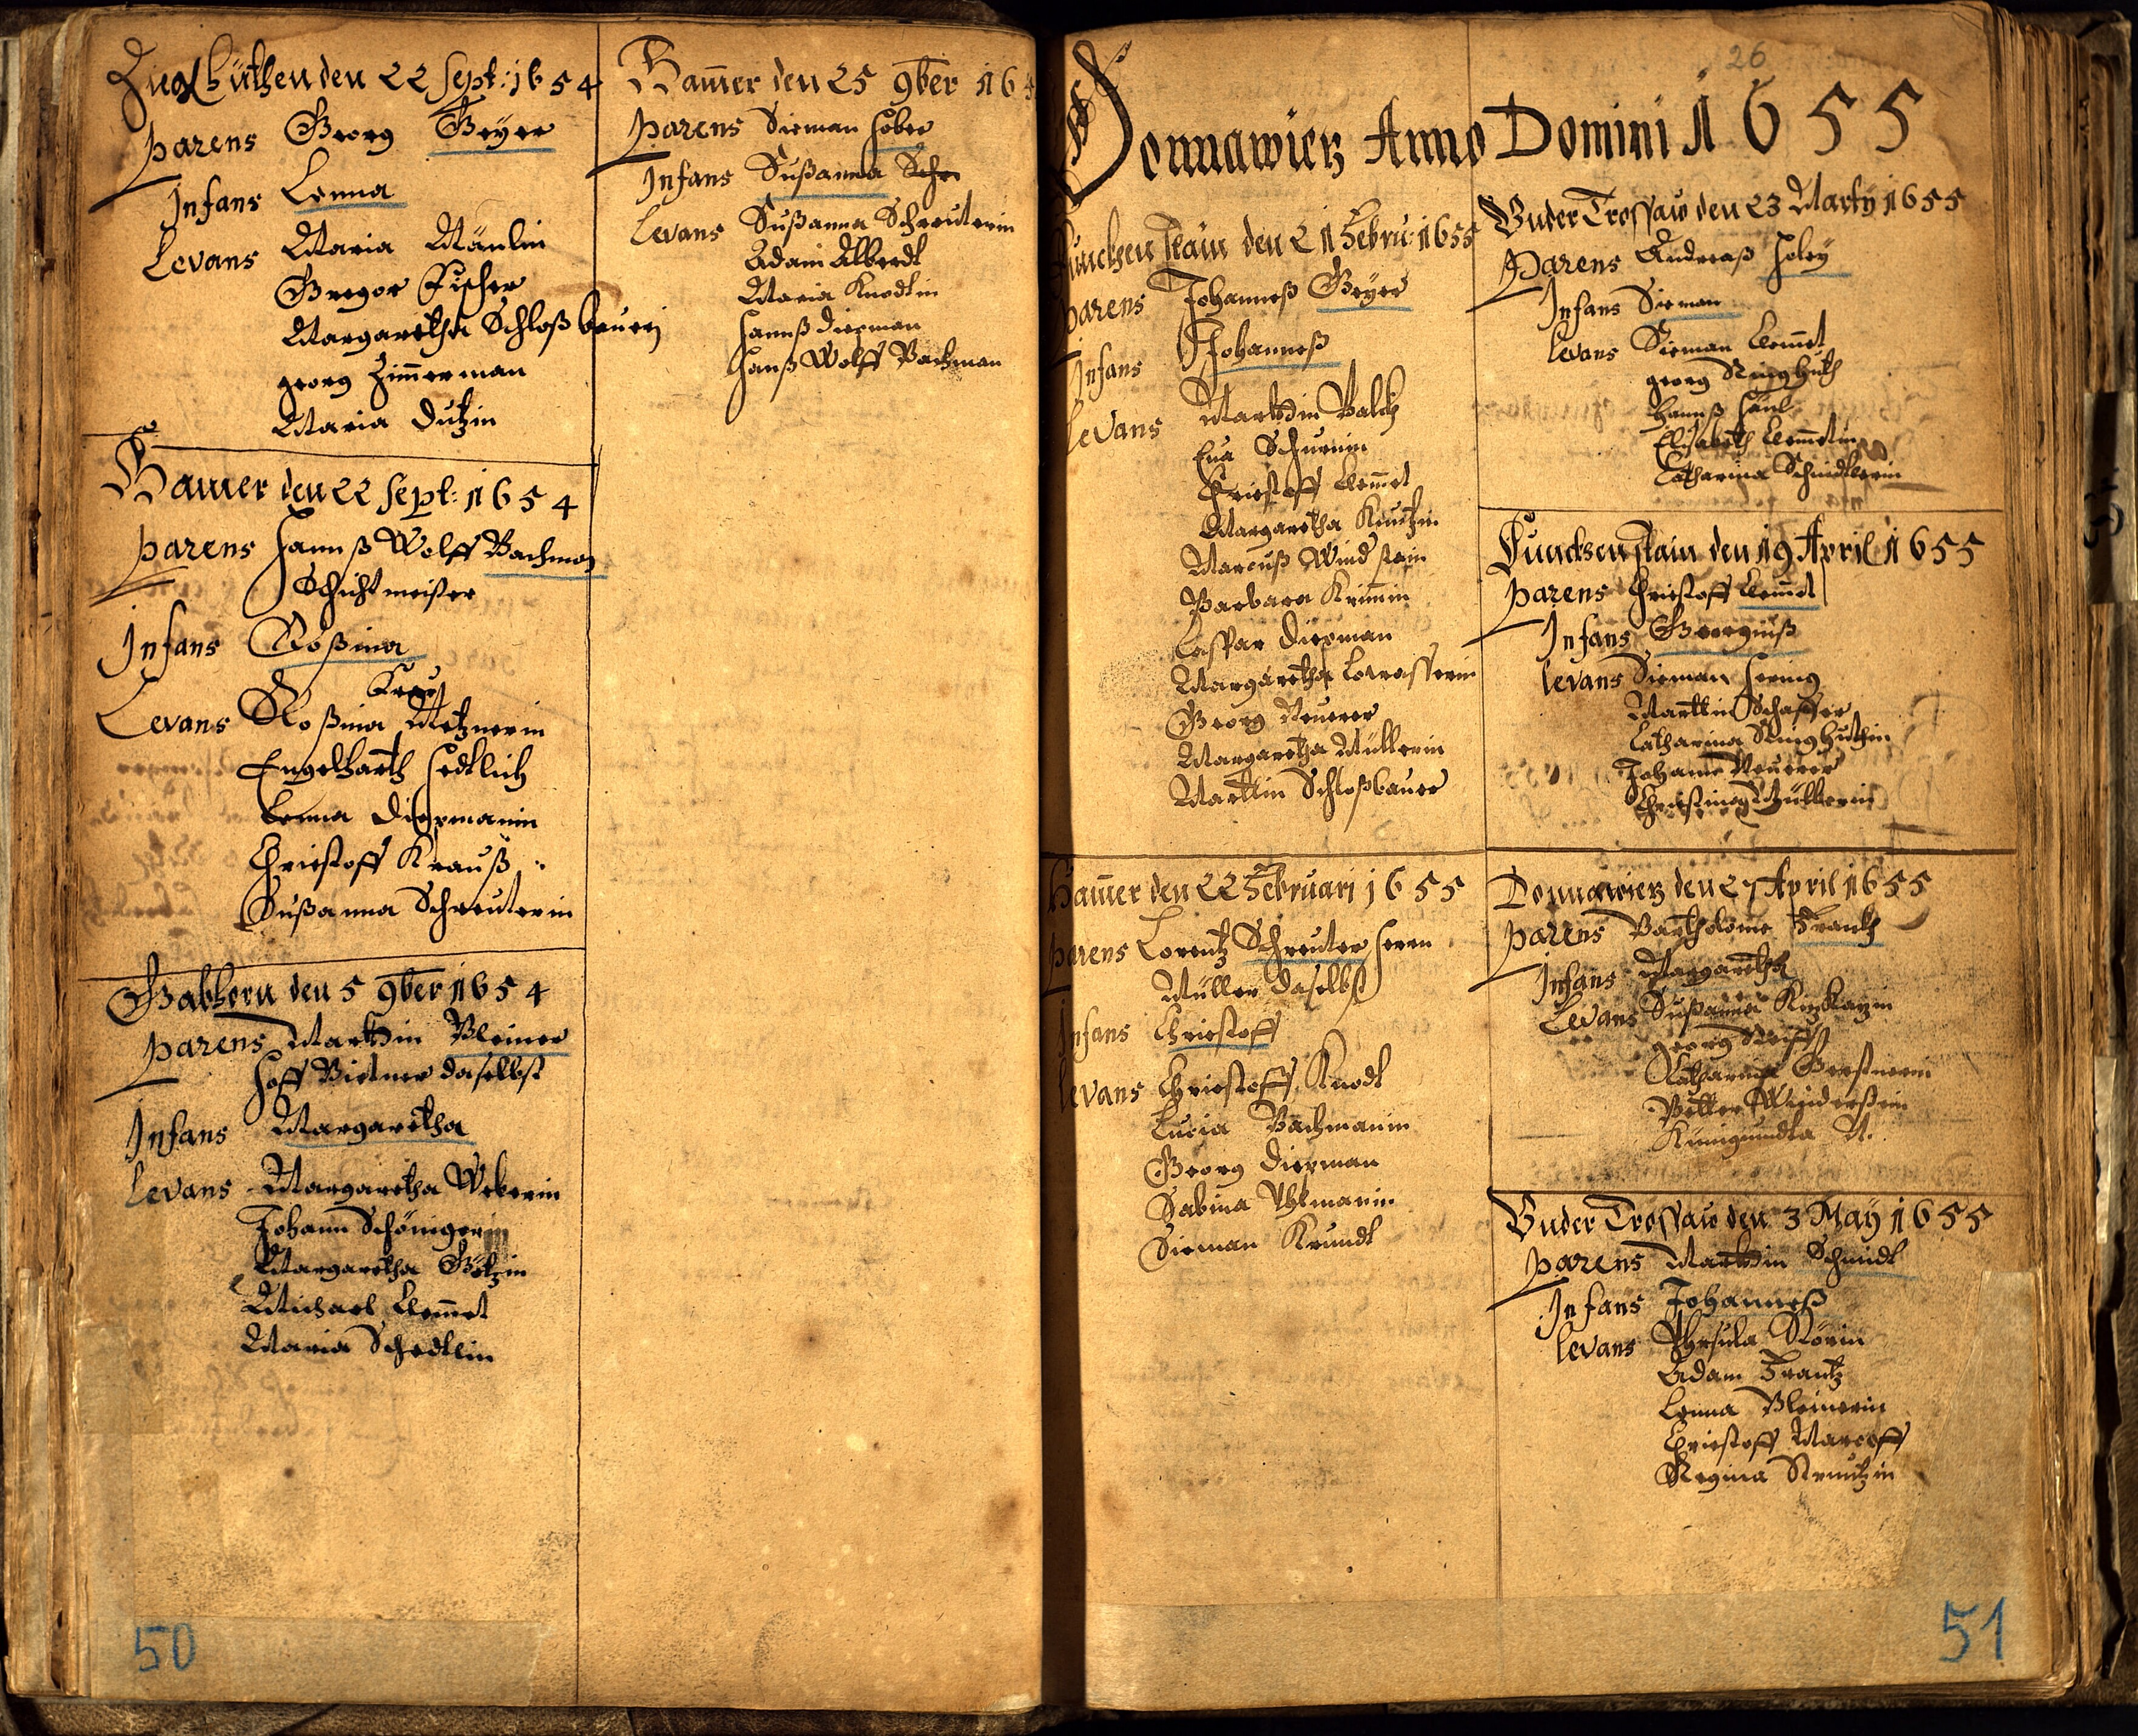 Ziegelhütten den 22 Sept: 1654
parens Georg Beyer
Infans Lenna
Levans Maria Mänlin
Gregor Fischer
Margaretha Schloßbaueri
georg Zim̄erman
Maria Dutzin
Ham̄er den 22 Sept: 1654
parens Hannß Wolff Bachman
Schichtmeister
Infans Roßina
Frau
Levans Roßina Metznerin
Engelharth Hedtlich
Lenna Diepmanin
Christoff Krauß
Sußanna Schreuterin
Gabhorn den 5 9ber 1654
parens Marthin Bleiner
Hoff Bietner daselbst
Infans Margaretha
Levans Margaretha Weberin
Johann Schöniger
Margaretha Götzin
Michael Klem̄et
Maria Schedtlin
50
Ham̄er den 25 9ber 16
parens Sieman Hober
Infans Sußanna Schr
Levans Sußanna Schreuterin
Adam Alberdt
Maria Knodtin
Hannß Diepman
Hanß Wolff Bachman
26
Donnawietz Anno Domini 1655
Funckenstain den 21 Febru: 1655
parens Johanneß Beyer
Infans Johanneß
Levans Marthin Balck
Eva Schurnin
Christoff Klem̄et
Margaretha Kuntzin
Marcuß Windstein
Barbara Krim̄in
Caspar Diepman
Margaretha
Georg Neuerer
Margaretha Müllerin
Marttin Schloßbauer
Ham̄er den 22 Februari 1655
parens Lorentz Schreuter Herrn
Müller daselbst
Infans Christoff
Levans Christoff Knodt
Lucia Bachmanin
Georg Diepman
Sabina Uhlmanin
Sieman Krundt
Under Trossaw den 23 Marty 1655
Parens Andreaß Holey
Infans Sieman
levans Sieman Klem̄et
georg Ringhuth
Hannß Häul
Elisabeth Klem̄etin
Catharina Schmidtlerin
Funckenstain den 19 April 1655
parens Christoff Klem̄et
Infans Georgiuß
levans Sieman Hering
Martin Schaffer
Catharina Ringhuthin
Johann Neuerer
Christina Müllerin
Donnawietz den 27 April 1655
parens Bartholome Franck
Infans Margaretha
Levans Sußanna
georg
Catharina Gerstnerin
Peter Winderstein
Kunigundta N.
Under Trossaw den 3 May 1655
parens Marthin Schmidt
Infans Johanneß
levans Uhrsula Körin
Adam Frantz
Lenna Bleinerin
Christoff Marcoff
Regina Kreutzin
51